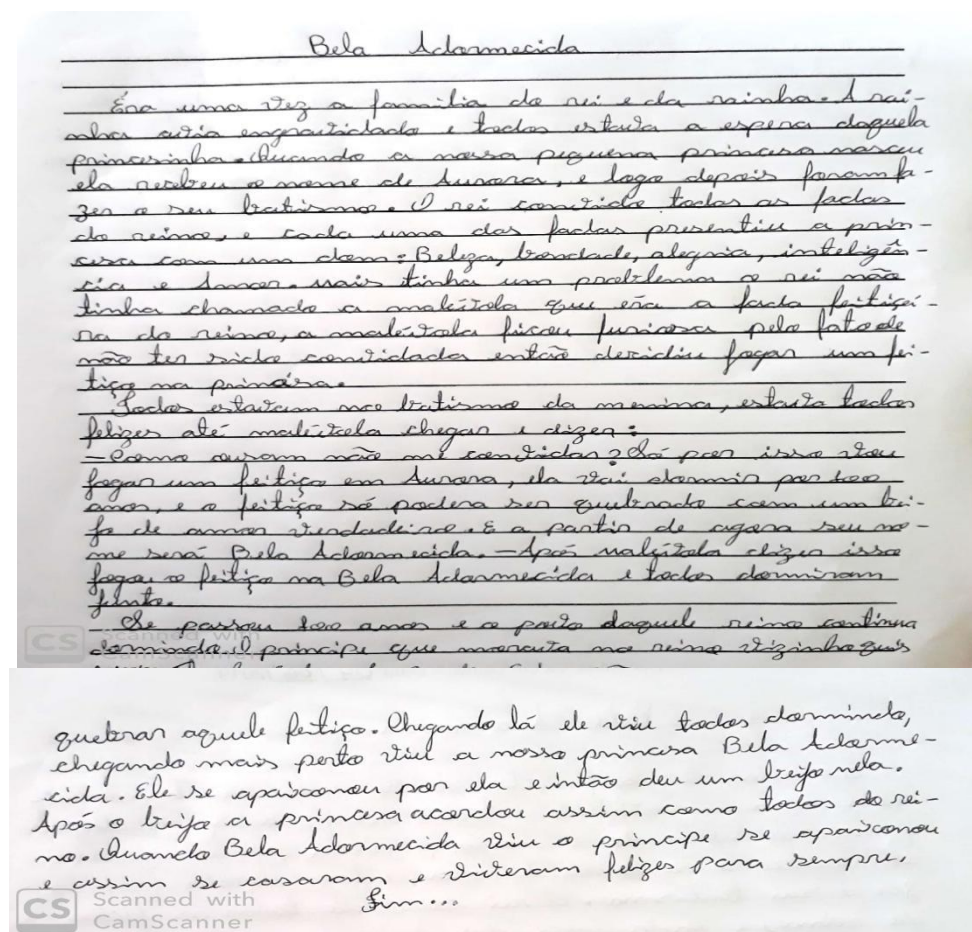 Bela Adormecida
Era uma vez a família do rei e da rainha. A rai-
nha avia engravidado e todos estava a espera daquela
princesinha. Quando a nossa pequena princesa nasceu
ela recebeu o nome de Aurora, e logo depois foram fa-
zer o seu batismo. O rei convido todas as fadas
do reino, e cada uma das fadas presentiu a prin-
cesa com um dom: Beleza, bondade, alegria, inteligên-
cia e Amor. mais tinha um problema o rei não
tinha chamado a malévola que era a fada feiticei-
ra do reino, a malévola ficou furiosa pelo fato de
não ter sido convidada então decidiu jogar um fei-
tiço na princesa.
Todos estavam no batismo da menina, estava todos
felizes até malévola chegar e dizer:
- Como ousam não me convidar? Só por isso vou
jogar um feitiço em Aurora, ela vai dormir por 100
anos, e o feitiço só podera ser quebrado com um bei-
jo de amor verdadeiro. E a partir de agora seu no-
me será Bela Adormecida. - Após malévola dizer isso
jogou o feitiço na Bela Adormecida e todos dormiram
junto.
Se passou 100 anos e o povo daquele reino continua
dormindo. O principe que morava no reino vizinho quis
quebrar aquele feitiço. Chegando lá ele viu todos dormindo,
chegando mais perto viu a nosso princesa Bela Adorme-
cida. Ele se apaixonou por ela e intão deu um beijo nela.
Após o beijo a princesa acordou assim como todos do rei-
no. Quando Bela Adormecida viu o principe se apaixonou
e assim se casaram e viveram felizes para sempre.
Fim...
CS Scanned with
CamScanner
CS Scanned with
CamScanner